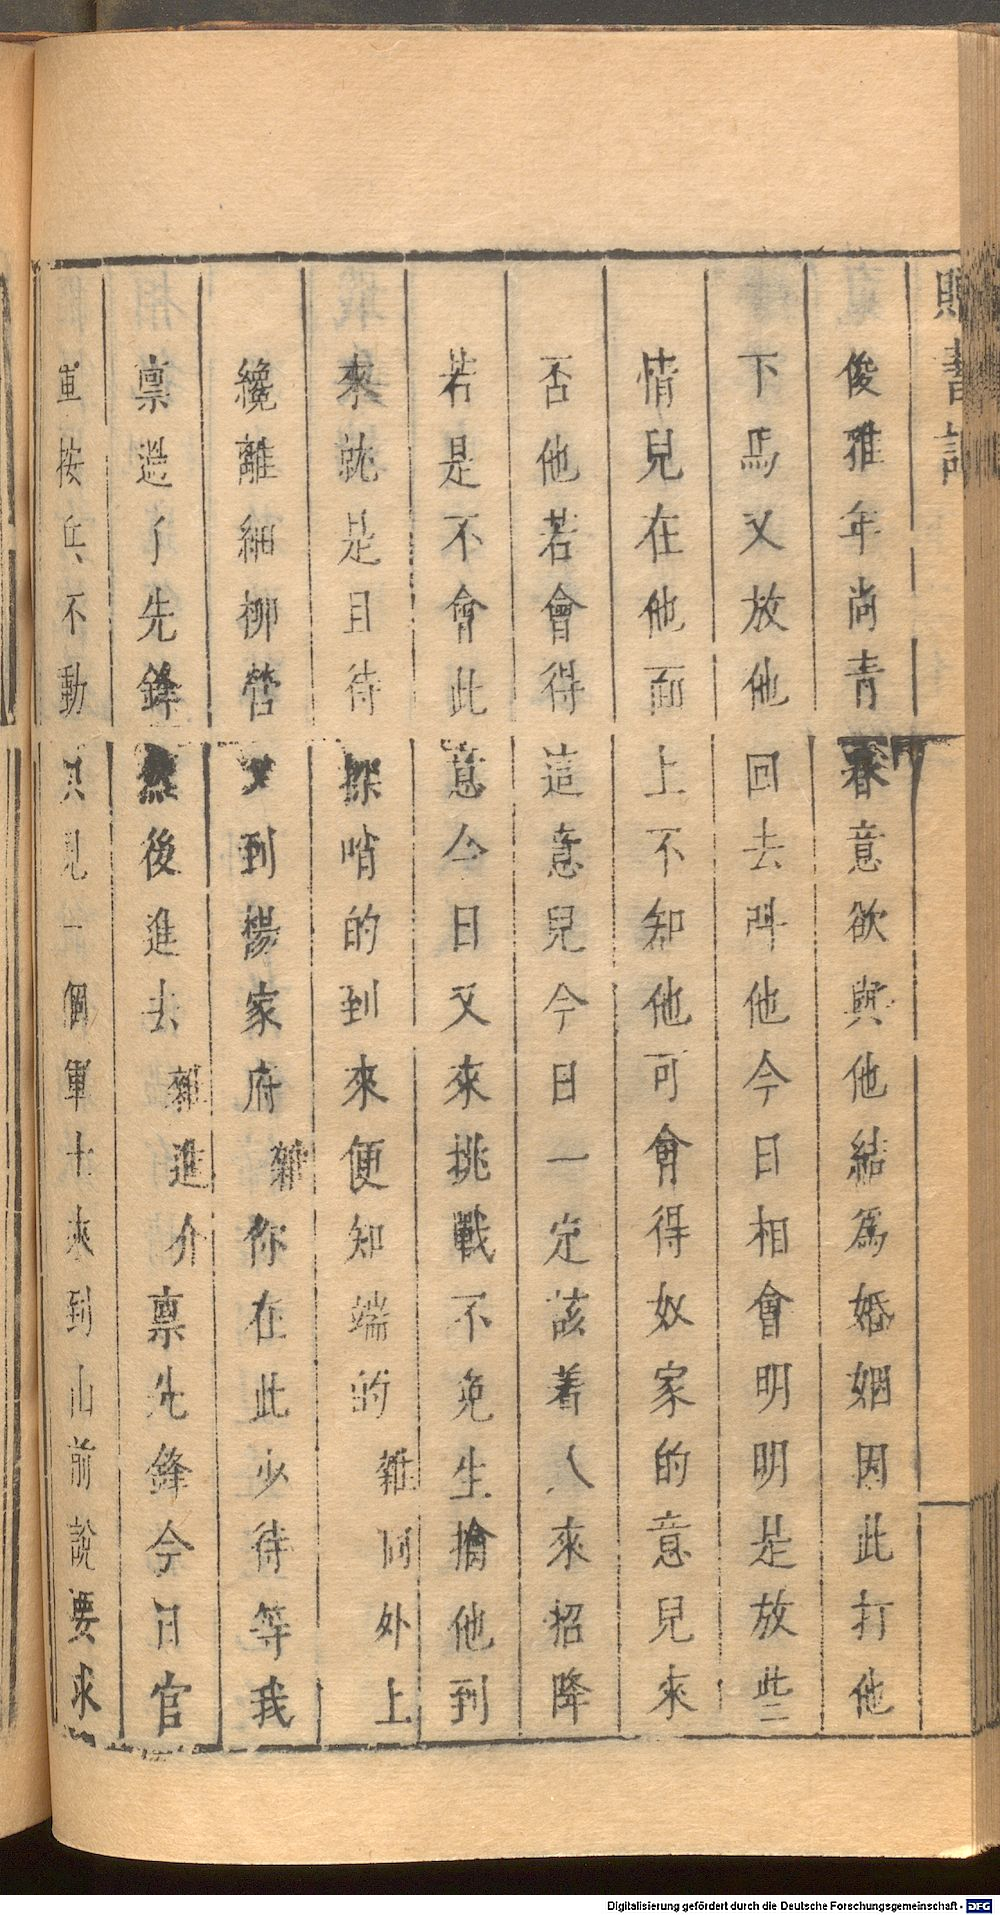 俊雅年尚青春意欲與他結為婚姻因此打他
下馬又放他回去呌他今日相會明明是放些
情兒在他面上不知他可會得奴家的意兒來
否他若會得這意兒今日一定該着人來招降
若是不會此意今日又來挑戰不免生擒他到
來就是且待探哨的到來便知端的雜同外上
纔離細柳營又到楊家府雜你在此少待等我
禀過了先鋒然後進去雜進介禀先鋒今日官
軍按兵不動只見一個軍士來到山前說要求
Digitalisierung gefördert durch die Deutsche Forschungsgemeinschaft - DFG